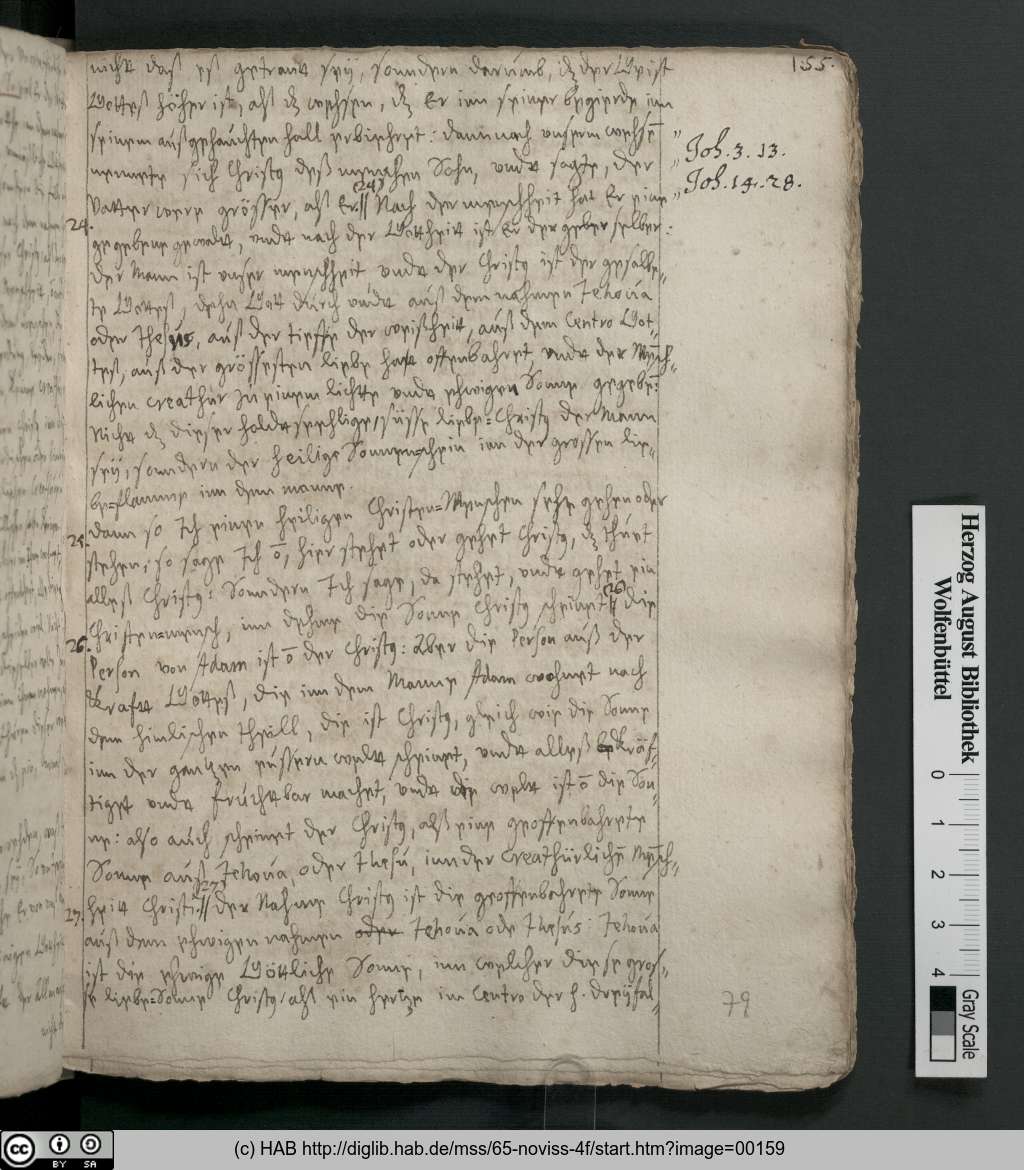 155.
nicht daß es getraut sey, sonndern darumb, dz der Geist
Gotteß höher ist, alß dz wehsen, dz Er inn seiner begierde inn
seinem außgehauchten hall erbiehret: dann nach unserm wehsē
nennete sich Christq deß menschen Sohn, undt sagte, der
Joh. 3. 13.
Joh. 14. 28.
Vatter were grösser, alß Er. (24) Nach der menschheit hat Er eine
24.
gegebene gewalt, undt nach der Gottheit ist Er der geber selber:
der Mann ist unser menschheit undt der Christq ist der gesalb-
te Gotteß, dehn Gott durch undt auß dem nahmen Jehova
oder Jhesus, auß der tieffe der weißheit, auß dem Centro Got-
teß, auß der grössesten liebe hatt offenbahret, undt der Mēsch-
lichen Creathur zu einem lichtte undt ehwigen Sonne gegebē:
Nicht dz dieser holdtseehlige, süsse liebe=Christq der Mann
sey, sonndern der heilige Sonnen=schein inn der grossen lie-
be=flamme inn dem manne.
25.
dann so Ich einen heiligen Christen=Menschen sehe gehen oder
stehen, so sage Ich ō, hier stehet oder gehet Christq, dz thuet
alleß Christq: Sonndern Ich sage, da stehet, undt gehet ein
Christen=mensch, inn dehme die Sonne Christq scheinet (26) die
26.
Person von Adam ist ō der Christq: Aber die Person auß der
Krafft Gotteß, die inn dem Manne Adam wohnet nach
dem himlischen theill, die ist Christq, gleich wie die Sonne
inn der gantzen eussern weltt scheinet, undt alleß kräf-
tiget undt fruchtbar machet, undt die weltt ist ō die Son-
ne: also auch scheinet der Christq, alß eine geoffenbahrete
Sonne auß Jehova, oder Jhesu, inn der Creathürlichē Mēsch-
heitt Christi. (27) der Nahme Christq ist die geoffenbahrete Sonne
27.
auß dem ehwigen nahmen oder Jehova ode Jhesus: Jehova
ist die ehwige Göttliche Sonne, inn welcher diese gros-
se liebe=Sonne Christq, alß ein hertze im Centro der h. dreyfal-
79
Herzog August Bibliothek
Wolfenbüttel
0 1 2 3 4
Gray Scale
cc BY SA
(c) HAB http://diglib.hab.de/mss/65-noviss-4f/start.htm?image=00159